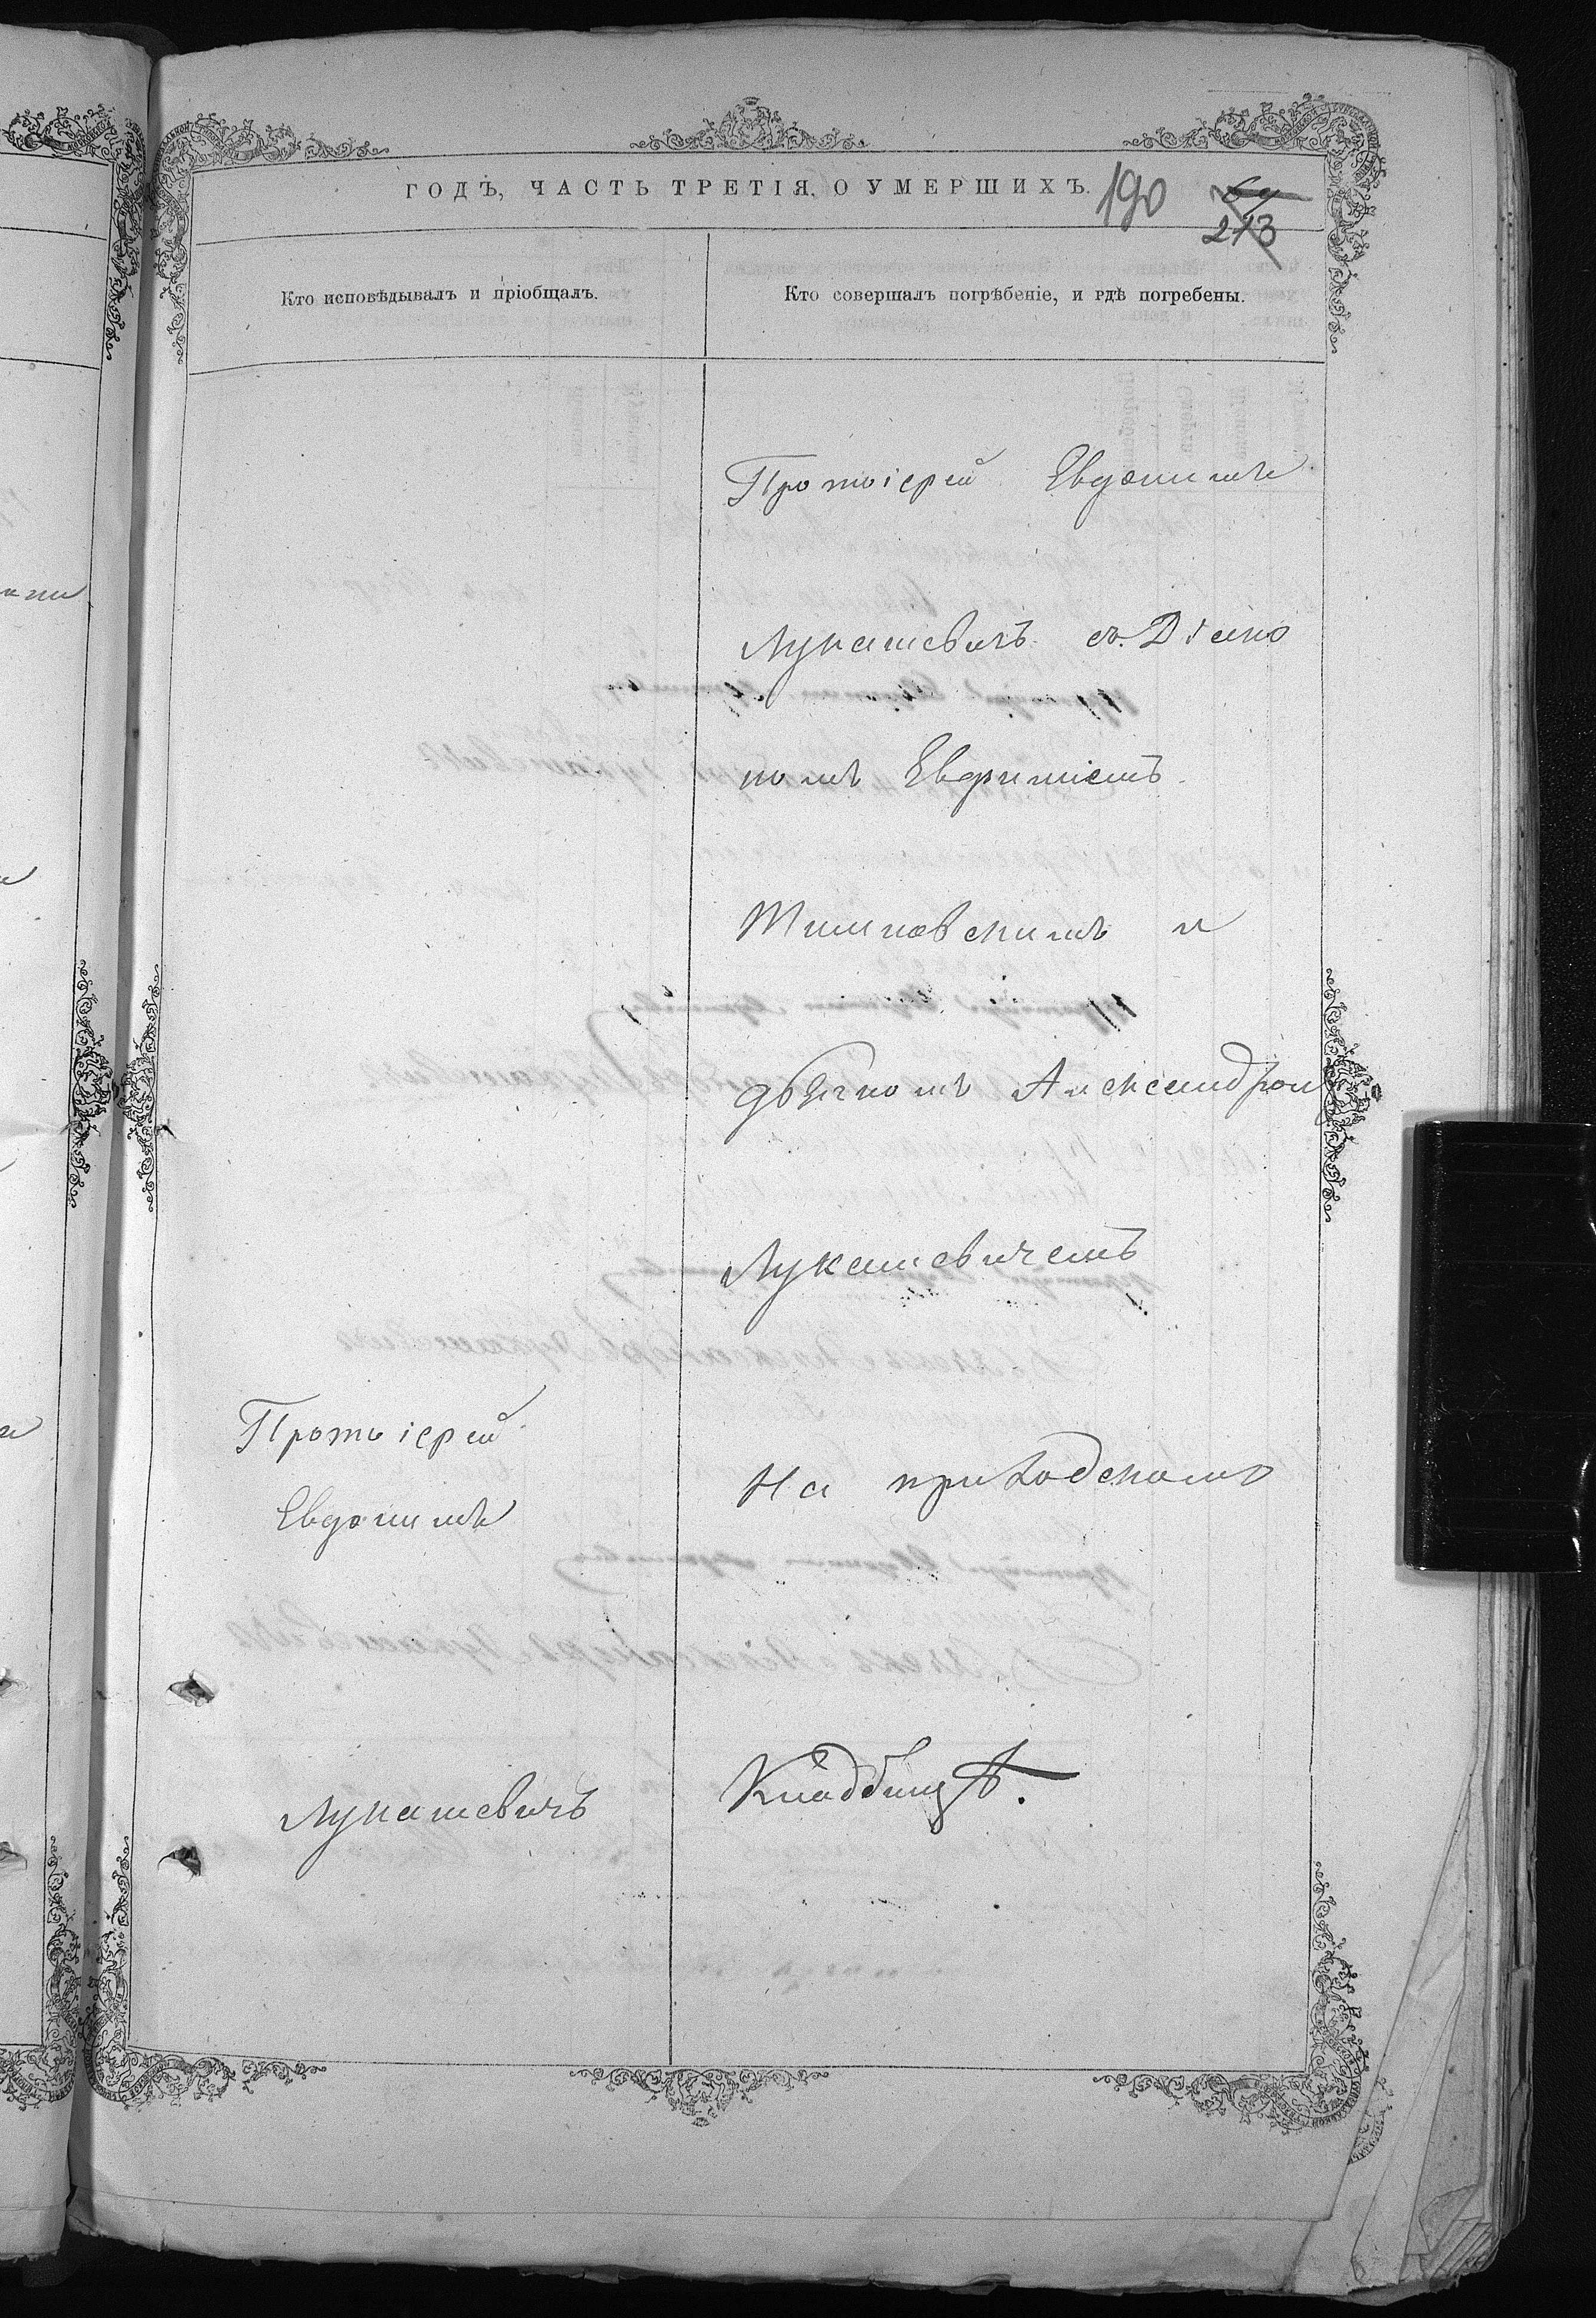 ГОДЪ, ЧАСТЬ ТРЕТІЯ, О УМЕРШИХЪ.
190
213
Кто исповѣдывалъ и пріобщалъ.
Кто совершалъ погрѣбеніе, и гдѣ погребены.
Протоіерей Евдокимъ
Лукашевичъ съ Діако
номъ Евфиміемъ
дьячкомъ Александром
Лукашевичемъ
На приходскомъ
Кладбищѣ.
Протоіерей
Евдокимъ
Лукашевичъ